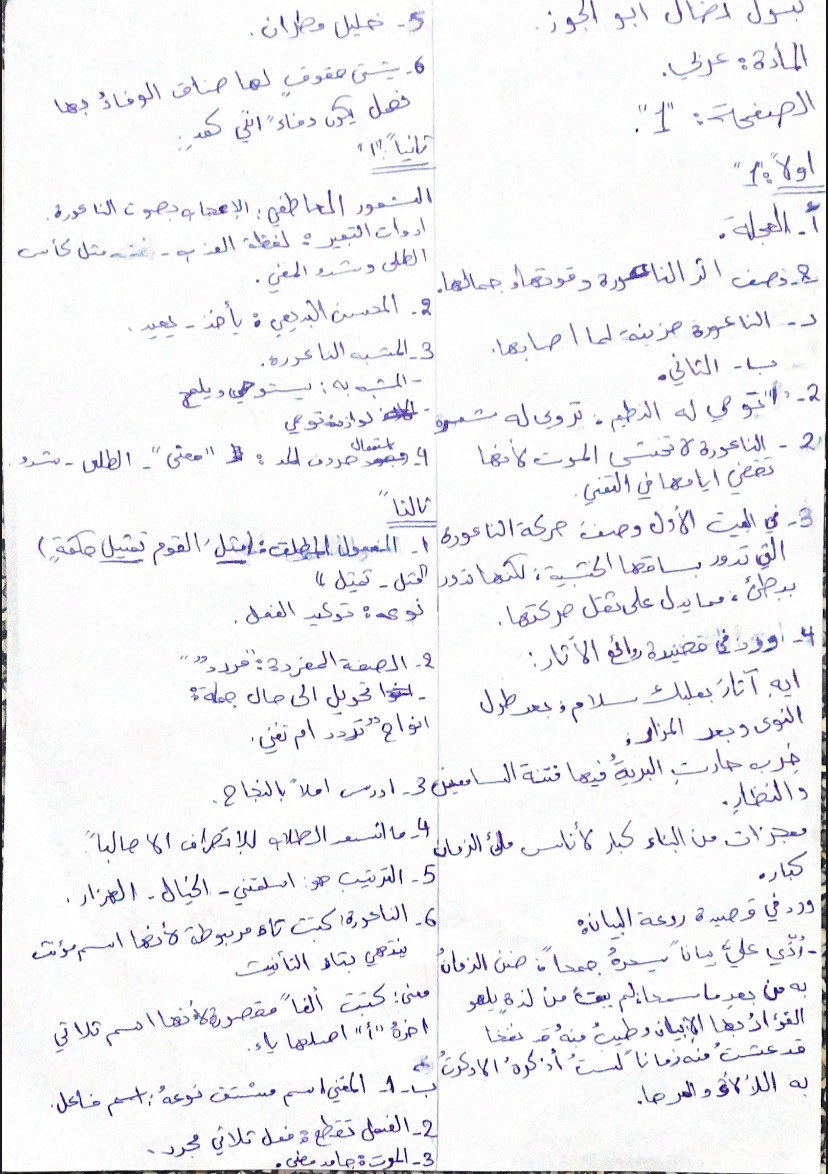 بتول نضال ابو الجوز.
المادة: عربي.
الصفحة: "1".
اولاً: "1"
أ- العجلة.
2- وصف اثر الناعورة وقوتها وجمالها.
د- الناعورة حزينة لما أصابها.
ب- الثاني.
2- "توحي له النظم: تروي له شعره
2- الناعورة لا تخشى الموت لأنها
تقضي ايامها في التغني.
3- في البيت الأول وصف حركة الناعورة
التي تدور بساقها الخشبية، لكنها تدور
ببطئ، مما يدل على ثقل حركتها.
4- ورد في قصيدة روائع الآثار:
ايه آثار بعلبك سلام، بعد طول
النوى وبعد المزار.
خِرب حارتِ البريةُ فيها فتنة السامعين
والنظارِ.
معجزات من البناء كبار لأناس ملئ الزمان
كبار.
ورد في قصيدة روعة البيان:
- رُدّي عليَّ بياناً سحرهُ جمحاً، ضن الزمانُ
به من بعدِ ما سمحا، لم يبقَ من لذةٍ يلهو
الفؤادُ بها الا بيان وطيبٌ منهُ قد نفحا
قد عشتُ منه زمانا لستُ أذكرهُ الا ذكرتُ
به اللألاءَ والمرحا.
5- خليل مطران.
6- يشتى حقوقٍ لها ضاق الوفاءُ بها
فهل يكون وفاءً أنني كمد.
ثانياً: "1"
الشعور العاطفي: الإعجاب بصوت الناعورة.
ادوات التعبير: لفظة العذب - مثل كأس
الطلى وشدو المغني.
2- المحسن البديعي: يأخذ - يعيد.
3- المشبه الناعورة.
- المشبه به: يستوحي ويلهج
- لوازمه توحي
4- استعمال حروف المد: "مغنى" - الطلى - شدو.
ثالثا"
1- المفعول المطلق: (مثل القوم تمثيل حكمةٍ)
"مثل - تمثيل"
نوعه: توكيد الفعل.
2- الصفة المفردة: "مردد"
- تحويل الى حال جملة:
انواح تردد ام تغني.
3- ادرس املاً بالنجاح.
4- ما انسعد الطلاب للإنصراف الا جالباً.
5- الترتيب هو: اسلمتني - الخيال - الهزار.
6- الناعورة: كتبت تاء مربوطة لأنها اسم مؤنث
ينتهي بتاء التأنيث
منى: كتبت ألفاً مقصورة لأنها اسم ثلاثي
اخرهُ "أ" اصلها ياء.
ب- 1- المغني اسم مشتق نوعهُ: اسم فاعل.
2- الفعل تقطع: فعل ثلاثي مجرد.
3- الموت: جامد معنى.